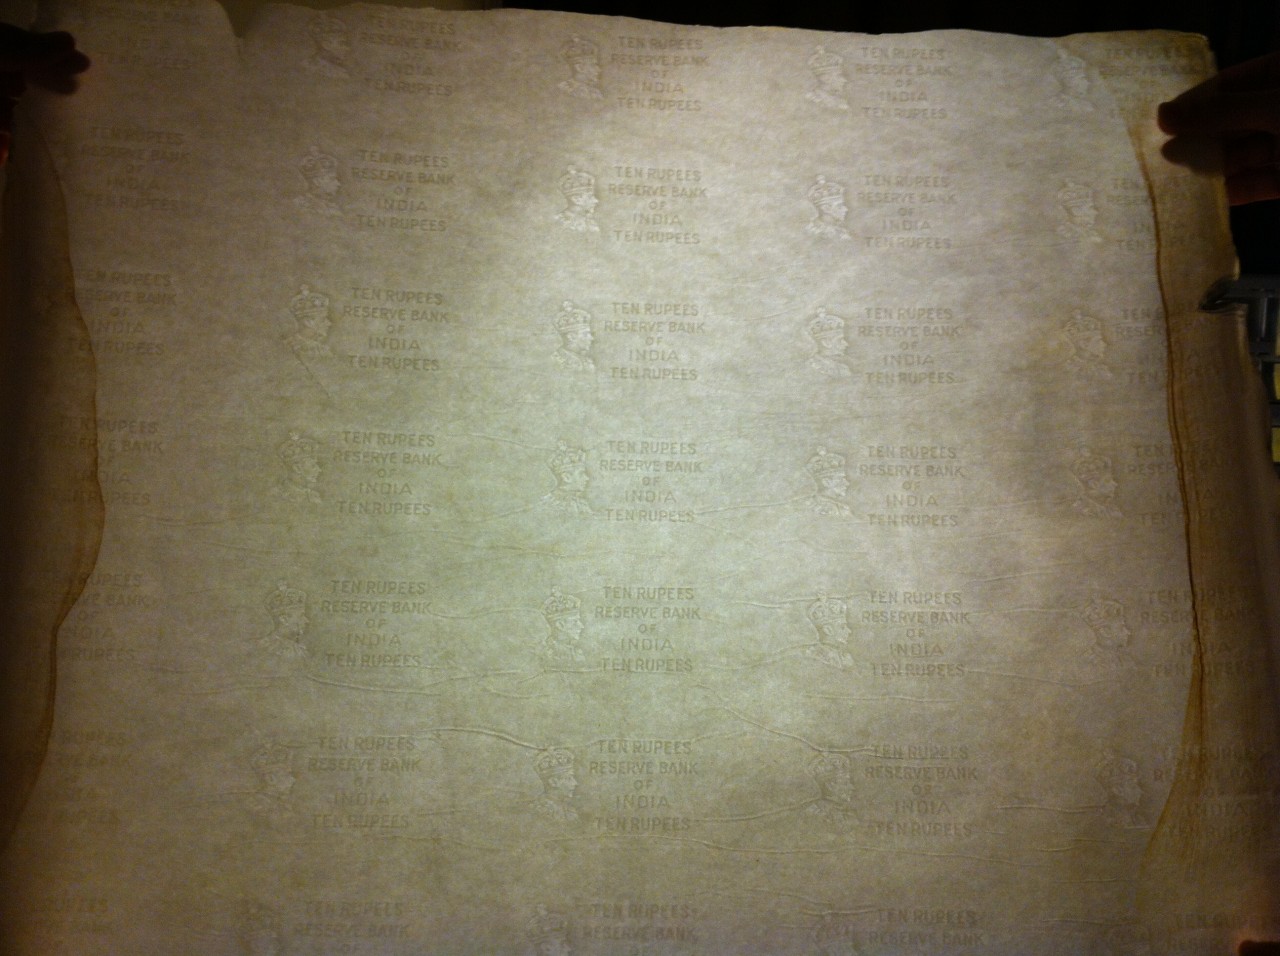 RESERVE BANK
INDIA
TEN RUPEES
TEN RUPEES
RESERVE BANK
OF
INDIA
TEN RUPEES
TEN RUPEES
RESERVE BANK
OF
INDIA
TEN RUPEES
TEN RUPEES
RESERVE BANK
OF
INDIA
TEN RUPEES
TEN RUPEES
RESERVE BANK
OF
INDIA
TEN RUPEES
TEN RUPEES
RESERVE BANK
OF
INDIA
TEN RUPEES
TEN RUPEES
RESERVE BANK
OF
INDIA
TEN RUPEES
TEN RUPEES
RESERVE BANK
OF
INDIA
TEN RUPEES
TEN RUPEES
RESERVE BANK
OF
INDIA
TEN RUPEES
TEN RUPEES
RESERVE BANK
OF
INDIA
TEN RUPEES
TEN RUPEES
RESERVE BANK
OF
INDIA
TEN RUPEES
TEN RUPEES
RESERVE BANK
OF
INDIA
TEN RUPEES
TEN RUPEES
RESERVE BANK
OF
INDIA
TEN RUPEES
TEN RUPEES
RESERVE BANK
OF
INDIA
TEN RUPEES
TEN RUPEES
RESERVE BANK
OF
INDIA
TEN RUPEES
TEN RUPEES
RESERVE BANK
OF
INDIA
TEN RUPEES
TEN RUPEES
RESERVE BANK
OF
INDIA
TEN RUPEES
TEN RUPEES
RESERVE BANK
OF
INDIA
TEN RUPEES
TEN RUPEES
RESERVE BANK
OF
INDIA
TEN RUPEES
TEN RUPEES
RESERVE BANK
OF
INDIA
TEN RUPEES
TEN RUPEES
RESERVE BANK
OF
TEN RUPEES
RESERVE BANK
TEN RUPEES
RESERVE BANK